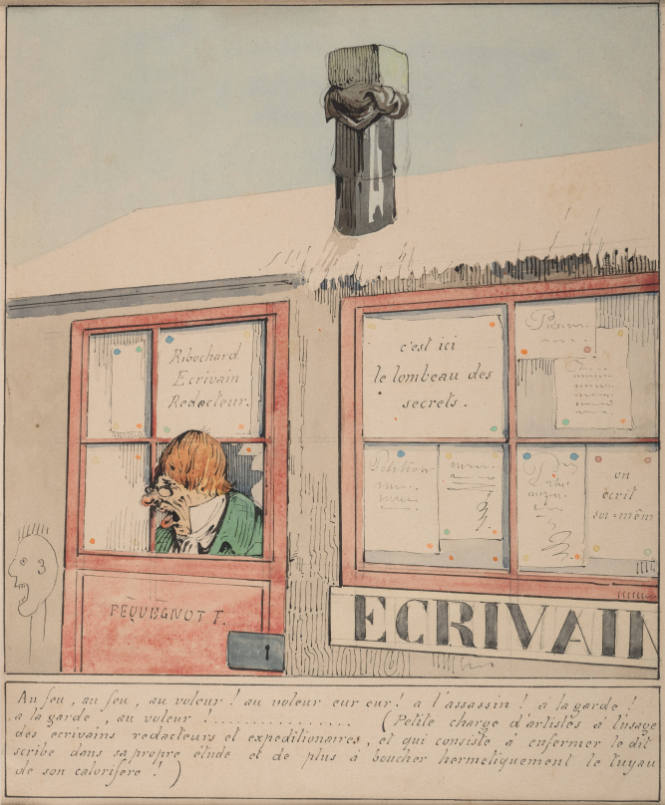 Ribochard
Ecrivain
Redacteur.
c'est ici
le tombeau des
secrets.
Petition
on
ecrit
soi=mêm
3
PÈQUEGNOT T.
ECRIVAIN
Au feu, au feu, au voleur! au voleur eur eur! a l'assassin! a la garde!
a la garde, au voleur!................ (Petite charge d'artistes à l'usage
des ecrivains redacteurs et expeditionaires, et qui consiste à enfermer le dit
scribe dans sa propre étude et de plus à boucher hermetiquement le tuyau
de son calorifere!)